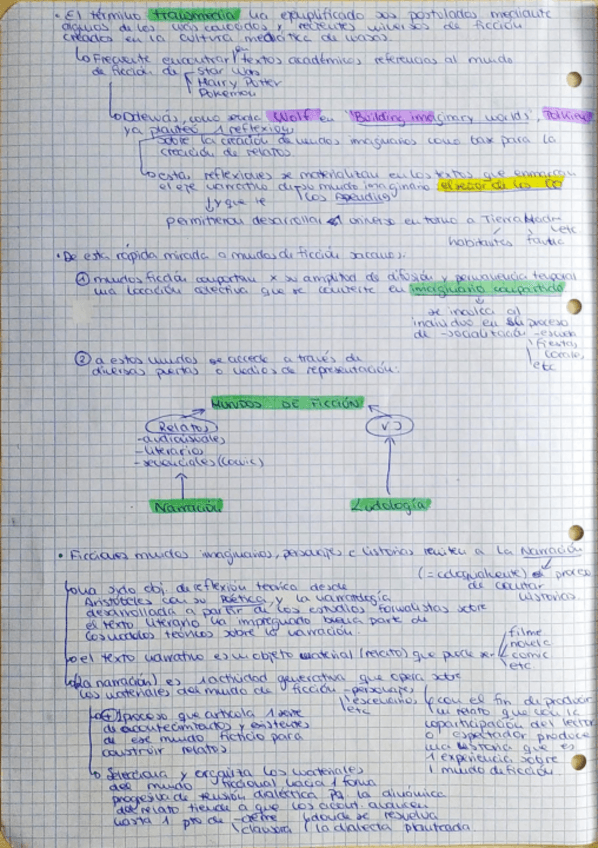 • El término transmedia ha ejemplificado sus postulados mediante
algunos de los más conocidos y recientes universos de ficción
creados en la cultura mediática de masas.
↳ Frecuente encontrar en textos académicos referencias al mundo
de ficción de Star Wars
Harry Potter
Pokemon
↳ Además, como Wolf en 'Building imaginary worlds', Tolkien
ya planteó 1 reflexión
sobre la creación de mundos imaginarios como base para la
creación de relatos.
↳ estas reflexiones se materializan en los textos que enmarcan
el eje narrativo de su mundo imaginario: el señor de los
↳ y que le los Apéndices
permitieron desarrollar el universo en torno a Tierra Media
habitantes etc
• De esta rápida mirada a mundos de ficción sacamos:
① mundos ficción comportan x su amplitud de difusión y permanencia temporal
una locación colectiva que se convierte en imaginario compartido
se inculca al
individuo en su proceso
de -socialización -escuela
fiestas,
comic,
etc
② a estos mundos se accede a través de
diversas puertas o medios de representación:
MUNDOS DE FICCIÓN
Relatos VJ
-audiovisuales
-literarios
-secuenciales (comic)
Narración Ludología
• Ficciones mundos imaginarios, personajes e historias remiten a la Narración
(= coloquialmente) proceso
de contar
historias.
↳ ha sido obj. de reflexión teórica desde
Aristóteles con su poética y la narratología
desarrollada a partir de los estudios formalistas sobre
el texto literario ha impregnado buena parte de
los modelos teóricos sobre la narración.
↳ el texto narrativo es un objeto material (relato) que puede ser
filme
novela
comic
etc
↳ (la narración) es 1 actividad generativa que opera sobre
los materiales del mundo de ficción -personajes
escenarios
etc
1 proceso que articula 1 serie
de acontecimientos y existentes
de ese mundo ficticio para
construir relatos
con el fin de producir
un relato que con la
coparticipación del lector
o espectador produce
una historia que es
1 experiencia sobre
1 mundo de ficción.
↳ Selecciona y organiza los materiales
del mundo ficcional hacia 1 forma
progresiva de tensión dialéctica pq la dinámica
del relato tiende a que los acont. avancen
hasta 1 pto de -cierre donde se resuelva
clausura la dialéctica planteada.